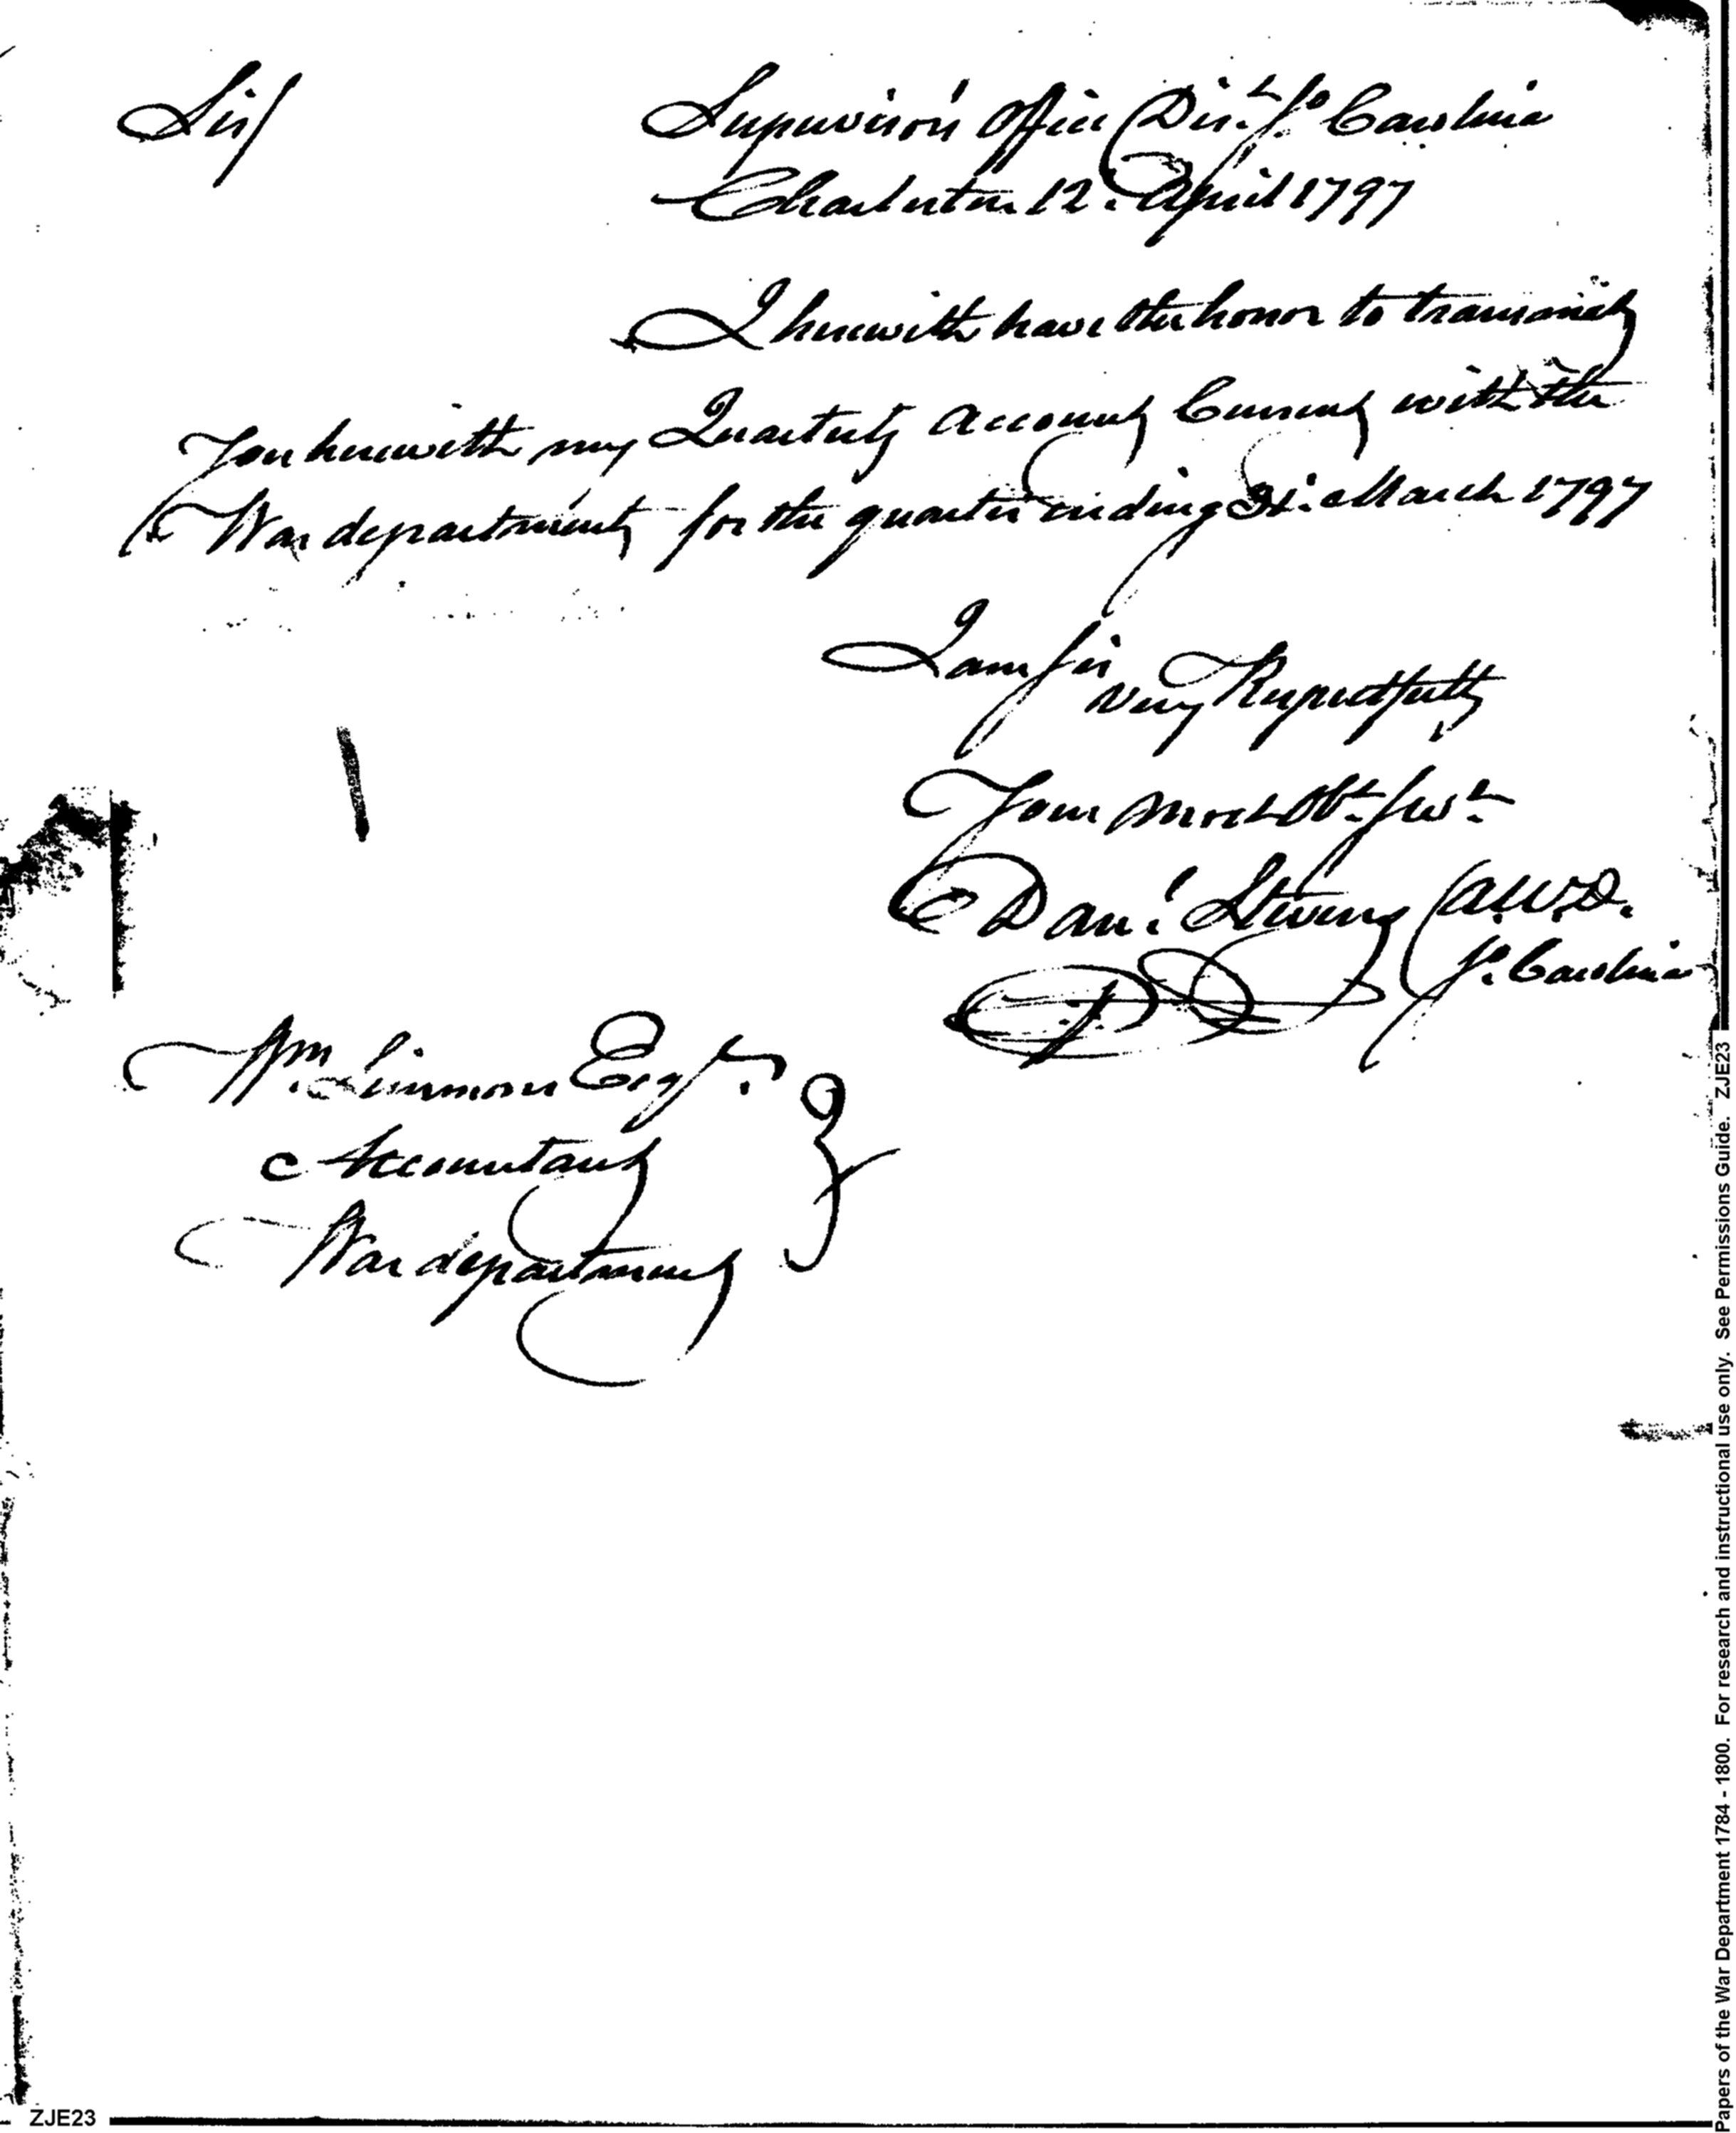 Sir/
Supervisors Office Dist. So Carolina
Charleston 12. April 1797
I herewith have the honor to transmit
You herewith my Quarterly Account Current with the
War department for the quarter ending 31. March 1797
I am Sir
very Respectfully
Your Most Obt. Servt.
Danl. Stevens A.W.D.
So. Carolina
Wm. Simmons Esqr.
Accountant
War department
ZJE23
Papers of the War Department 1784 - 1800. For research and instructional use only. See Permissions Guide. ZJE23